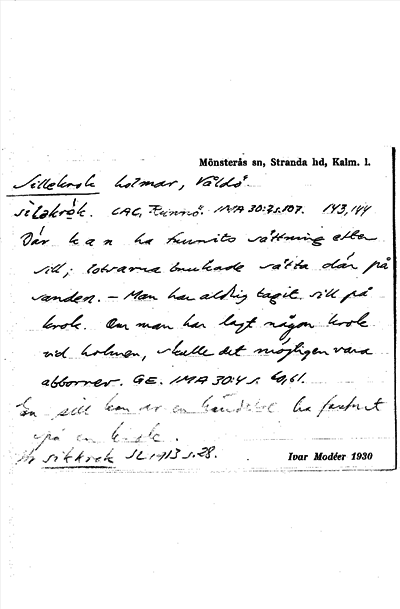 Mönsterås sn, Stranda hd, Kalm. l.
Sillekrok holmar, Våldö
CAC, Runnö. IMA 30:2s.107. 143,144
Där kan ha funnits sättning efter
sill; lotsarna brukade sätta där på
sanden. – Man har aldrig tagit sill på
krok. Om man har lagt någon krok
vid holmen, skulle det möjligen vara
abborrev. GE. IMA 30:4 s. 60,61.
En sill kan av en händelse ha fastnat
på en krok.
sikkrok SL 1913 s.28.
Ivar Modéer 1930